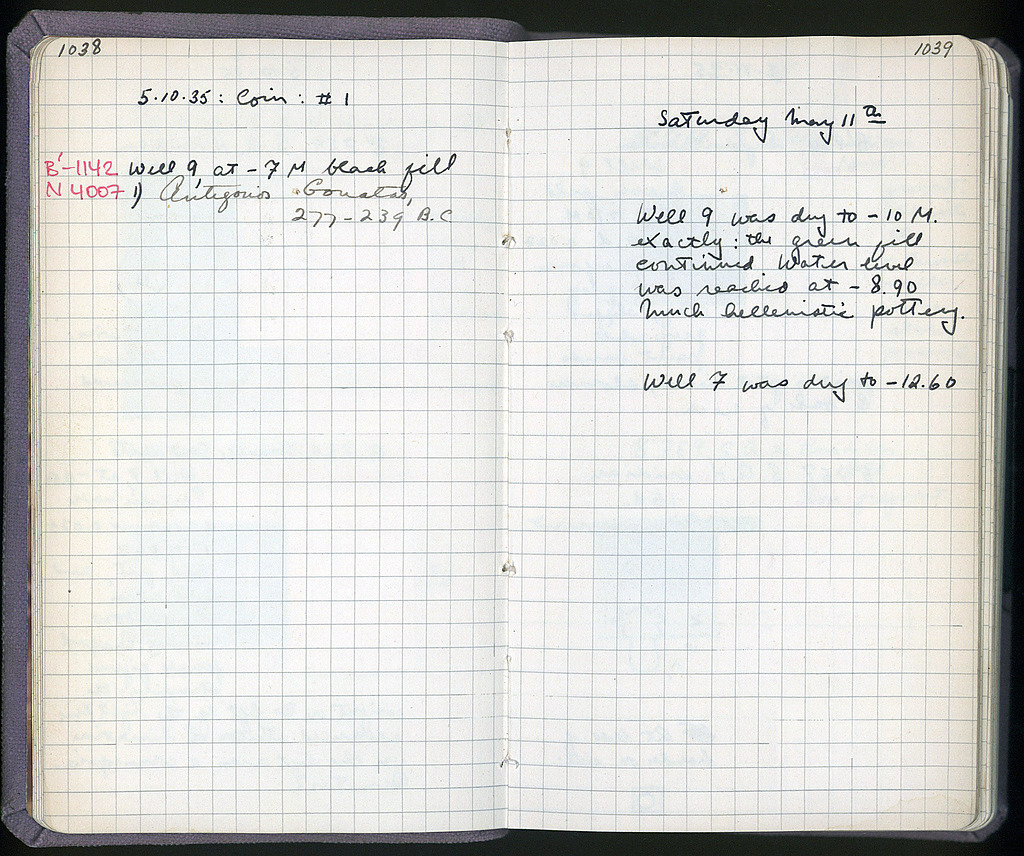 1038
5.10.35: Coin: # 1
B'-1142 Well 9, at -7 M black fill
N 4007 1) Antigonos Gonatas,
277-239 B.C
1039
Saturday May 11th
Well 9 was dug to -10 M.
exactly: the green fill
continued Water level
was reached at -8.90
Much hellenistic pottery.
Well 7 was dug to -12.60